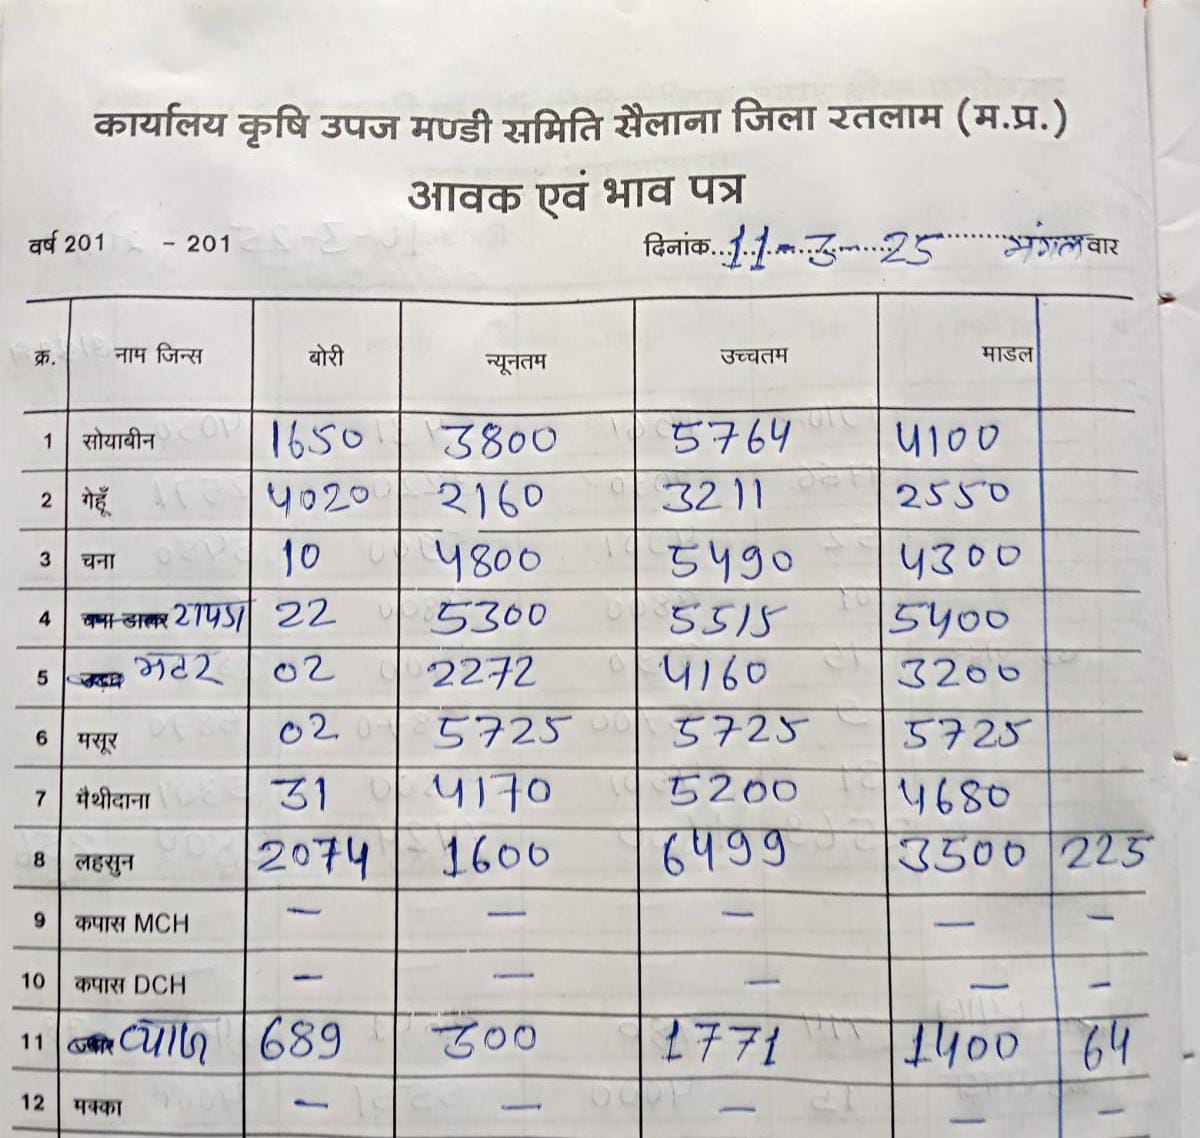 कार्यालय कृषि उपज मण्डी समिति सैलाना जिला रतलाम (म.प्र.)
आवक एवं भाव पत्र
वर्ष 201 - 201 दिनांक 11-3-25 मंगलवार
क्र. नाम जिन्स बोरी न्यूनतम उच्चतम माडल
1 सोयाबीन 1650 3800 5764 4100
2 गेहूँ 4020 2160 3211 2550
3 चना 10 4800 5490 4300
4 रायडा 22 5300 5515 5400
5 मटर 02 2272 4160 3200
6 मसूर 02 5725 5725 5725
7 मैथीदाना 31 4170 5200 4680
8 लहसुन 2074 1600 6499 3500 225
9 कपास MCH — — — — —
10 कपास DCH — — — — —
11 प्याज 689 300 1771 1400 64
12 मक्का — — — — —